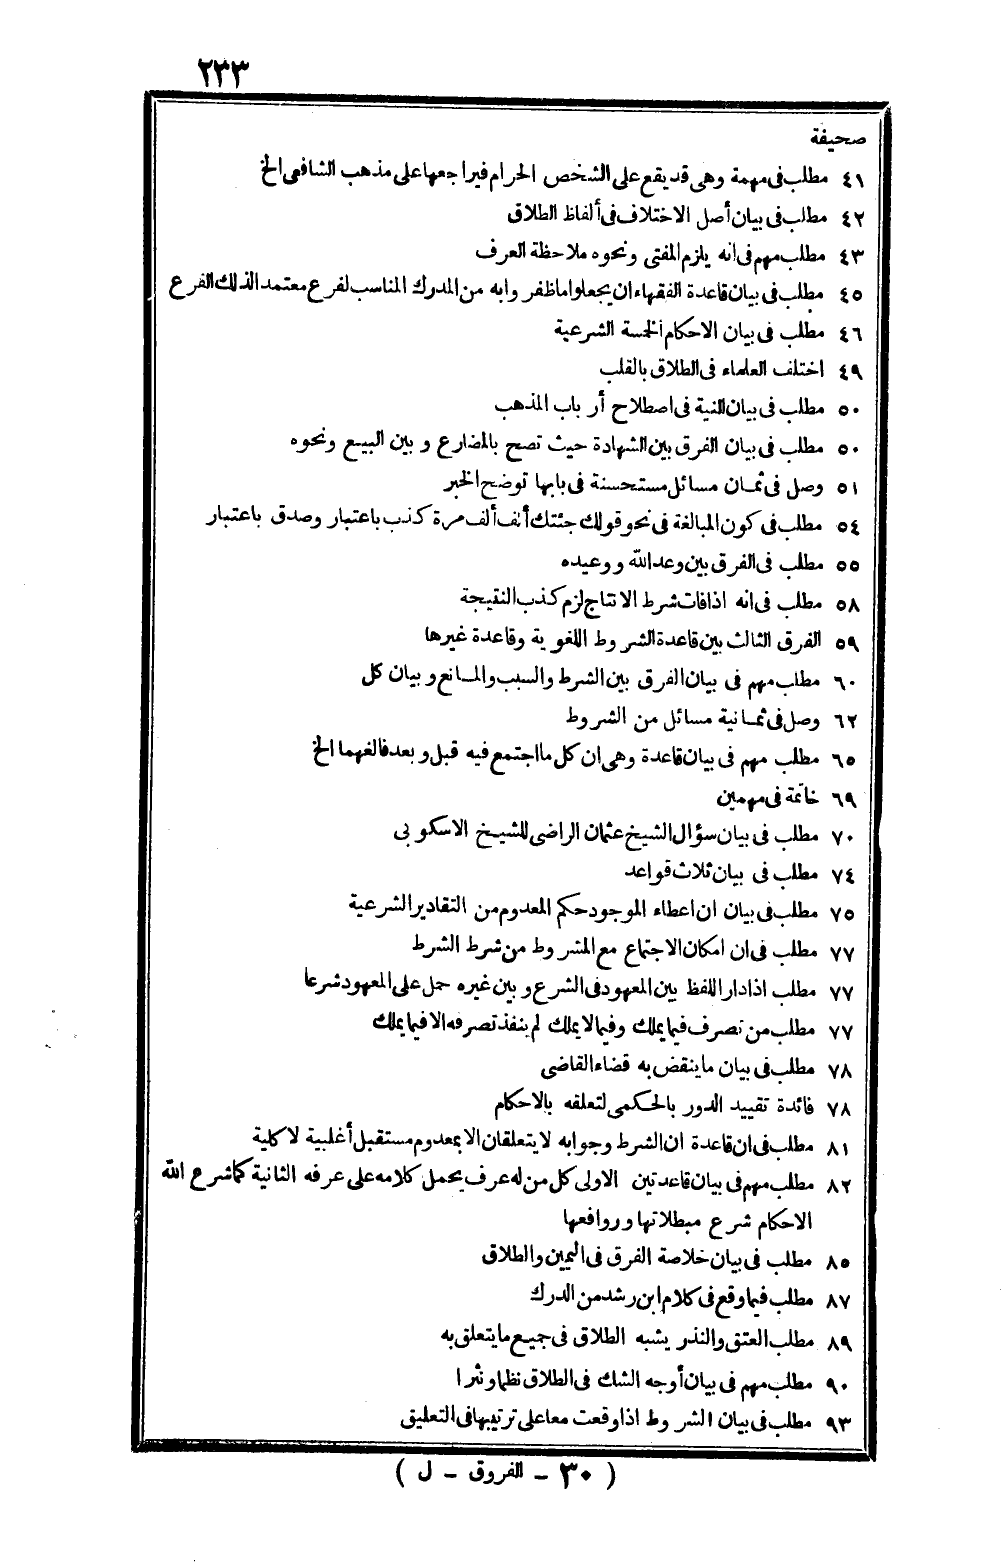 ٢٣٣
صحيفة
٤١ مطلب فى مهمة وهى قد يقع على الشخص الحرام فيراجعها على مذهب الشافعى الخ
٤٢ مطلب فى بيان أصل الاختلاف فى ألفاظ الطلاق
٤٣ مطلب مهم فى انه يلزم المفتى ونحوه ملاحظة العرف
٤٥ مطلب فى بيان قاعدة الفقهاء ان يجعلوا ماظفروا به من المدرك المناسب لفرع معتمد الذلك الفرع
٤٦ مطلب فى بيان الاحكام الخمسة الشرعية
٤٩ اختلف العلماء فى الطلاق بالقلب
٥٠ مطلب فى بيان النية فى اصطلاح أرباب المذهب
٥٠ مطلب فى بيان الفرق بين الشهادة حيث تصح بالمضارع وبين البيع ونحوه
٥١ وصل فى ثمان مسائل مستحسنة فى بابها توضح الخبر
٥٤ مطلب فى كون المبالغة فى نحو قولك جئتك ألف ألف مرة كذب باعتبار وصدق باعتبار
٥٥ مطلب فى الفرق بين وعد الله ووعيده
٥٨ مطلب فى انه اذا فات شرط الانتاج لزم كذب النقيجة
٥٩ الفرق الثالث بين قاعدة الشروط اللغوية وقاعدة غيرها
٦٠ مطلب مهم فى بيان الفرق بين الشرط والسبب والمانع وبيان كل
٦٢ وصل فى ثمانية مسائل من الشروط
٦٥ مطلب مهم فى بيان قاعدة وهى ان كل ما اجتمع فيه قبل وبعد فالغهما الخ
٦٩ خاتمة فى مهمين
٧٠ مطلب فى بيان سؤال الشيخ عثمان الراضى للشيخ الاسكوبى
٧٤ مطلب فى بيان ثلاث قواعد
٧٥ مطلب فى بيان ان اعطاء الموجود حكم المعدوم من التقادير الشرعية
٧٧ مطلب فى ان امكان الاجتماع مع المشروط من شرط الشرط
٧٧ مطلب اذا دار اللفظ بين المعهود فى الشرع وبين غيره حمل على المعهود شرعا
٧٧ مطلب من تصرف فيما يملك وفيما لا يملك لم ينفذ تصرفه الا فيما يملك
٧٨ مطلب فى بيان ما ينقض به قضاء القاضى
٧٨ فائدة تقييد الدور بالحكمى لتعلقه بالاحكام
٨١ مطلب فى ان قاعدة ان الشرط وجوابه لا يتعلقان الا بمعدوم مستقبل أغلبية لا كلية
٨٢ مطلب مهم فى بيان قاعدتين الاولى كل من له عرف يحمل كلامه على عرفه الثانية كما شرع الله
الاحكام شرع مبطلاتها وروافعها
٨٥ مطلب فى بيان خلاصة الفرق فى اليمين والطلاق
٨٧ مطلب فيما وقع فى كلام ابن رشد من الدرك
٨٩ مطلب العتق والنذر يشبه الطلاق فى جميع ما يتعلق به
٩٠ مطلب مهم فى بيان أوجه الشك فى الطلاق نظما ونثرا
٩٣ مطلب فى بيان الشروط اذا وقعت معا على ترتيبها فى التعليق
( ٣٠ - الفروق - ل )